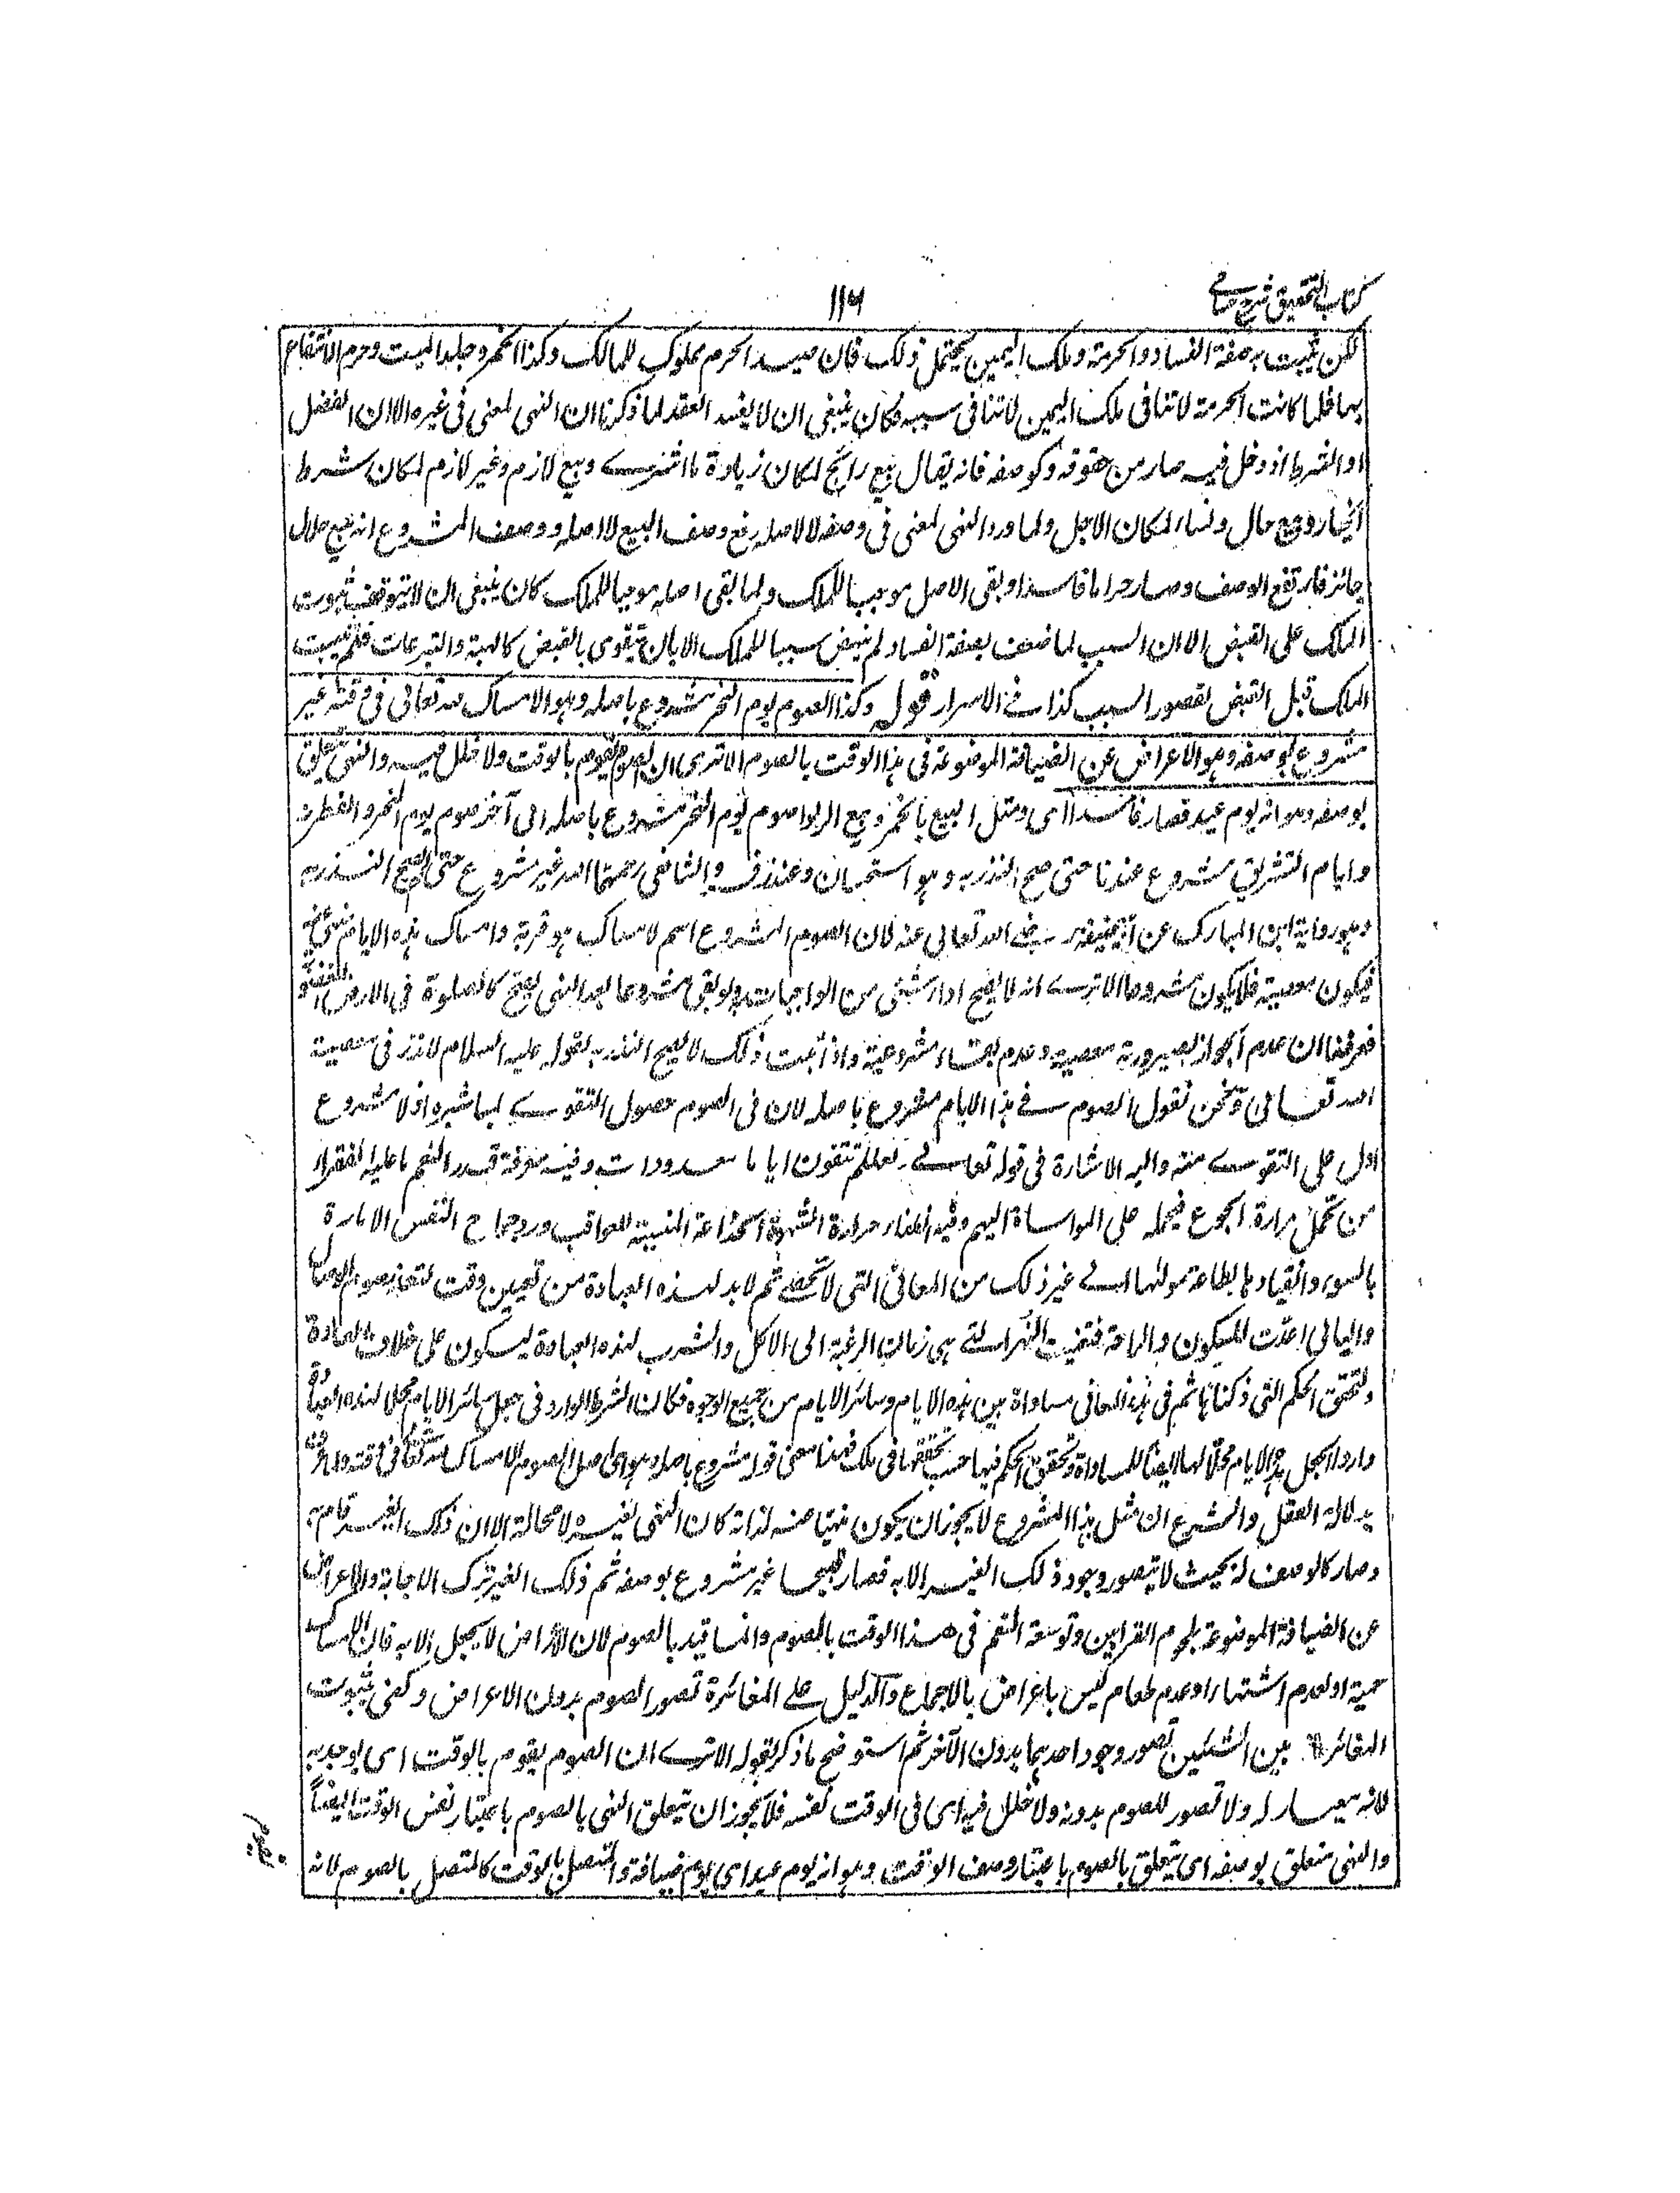 كتاب التحقيق شرح حسامي
١١٦
لكن يثبت به صفة الفساد والحرمة وملك اليمين يحتمل ذلك فان صيد الحرم مملوك للمالك وكذا الخمر وجلد الميت وحرم الانتفاع
بها فلما كانت الحرمة لا تنافى ملك اليمين لا تنافى سببه فكان ينبغى ان لا يفسد العقد لما ذكرنا ان النهى لمعنى فى غيره الا ان الفضل
او الشرط اذ دخل فيه صار من حقوقه وكوصفه فانه يقال بيع رابح لمكان زيادة ما اشترى وبيع لازم وغير لازم لمكان شرط
الخيار وبيع حال ونساء لمكان الاجل ولما ورد النهى لمعنى فى وصفه لا لاصله رفع وصف البيع لا اصله ووصف المشروع انه بيع حلال
جائز فارتفع الوصف وصار حراما فاسدا وبقى الاصل موجبا للملك ولما بقى اصله موجبا للملك كان ينبغى ان لا يتوقف ثبوت
الملك على القبض الا ان السبب لما ضعف بصفة الفساد لم ينهض سببا للملك الا بان يتقوى بالقبض كالهبة والتبرعات فلم يثبت
الملك قبل القبض لقصور السبب كذا فى الاسرار قوله وكذا الصوم يوم النحر مشروع باصله وهو الامساك لله تعالى فى وقته غير
مشروع بوصفه وهو الاعراض عن الضيافة الموضوعة فى هذا الوقت بالصوم الا ترى ان الصوم يقوم بالوقت ولا خلل فيه والنهى يتعلق
بوصفه وهو انه يوم عيد فصار فاسدا اى ومثل البيع بالخمر وبيع الربوا صوم يوم النحر مشروع باصله الى آخر صوم يوم النحر والفطر
وايام التشريق مشروع عندنا حتى صح النذر به وهو استحسان وعند زفر والشافعى رحمهما الله غير مشروع حتى لا يصح النذر به
وهو رواية ابن المبارك عن ابى حنيفة رضى الله تعالى عنه لان الصوم المشروع اسم لامساك هو قربة وامساك هذه الايام منهى عنه
فيكون معصية فلا يكون مشروعا الا ترى انه لا يصح اداء شئ من الواجبات ولو بقى مشروعا بعد النهى يصح كالصلوة فى الارض المغصوبة
فعرفنا ان عدم الجواز لصيرورته معصية وعدم بقاء مشروعيته واذا ثبت ذلك لا يصح النذر به لقوله عليه السلام لا نذر فى معصية
الله تعالى ونحن نقول الصوم فى هذا الايام مشروع باصله لان فى الصوم حصول التقوى لمباشره اذ لا مشروع
ادل على التقوى منه واليه الاشارة فى قوله تعالى لعلكم تتقون اياما معدودات وفيه معرفة قدر النعم ما عليه الفقراء
من تحمل مرارة الجوع فيحمله على المواساة اليهم وفيه اطفاء حرارة الشهوة الخداعة المنسية للعواقب ورد جماح النفس الامارة
بالسوء وانقيادها لطاعة مولاها الى غير ذلك من المعانى التى لا تحصى ثم لا بد لهذه العبادة من تعيين وقت لتعذر صوم الوصال
والليالى اعدت للسكون والراحة فتعينت النهر التى هى زمان الرغبة الى الاكل والشرب لهذه العبادة ليكون على خلاف العادة
ولتحقق الحكم التى ذكرناها ثم فى هذه المعانى مساواة بين هذه الايام وسائر الايام من جميع الوجوه فكان الشرط الوارد فى جعل سائر الايام محلا لهذه العبادة
واردا لجعل هذه الايام محلا لها ايضا للمساواة وتحقق الحكم فيها حسب تحققها فى تلك فهذا معنى قوله مشروع باصله وهو اى اصل الصوم الامساك لله تعالى فى وقته
بدلالة العقل والشرع ان مثل هذا المشروع لا يجوز ان يكون منهيا عنه لذاته كان النهى لغيره لا محالة الا ان ذلك الغير قام به
وصار كالوصف له بحيث لا يتصور وجود ذلك الغير الا به فصار قبيحا غير مشروع بوصفه ثم ذلك الغير ترك الاجابة والاعراض
عن الضيافة الموضوعة بلحوم القرابين وتوسعة النعم فى هذا الوقت بالصوم وانما قيد بالصوم لان الاعراض لا يحصل الا به فان الامساك
حمية او لعدم اشتهاء او عدم طعام ليس باعراض بالاجماع والدليل على المغائرة تصور الصوم بدون الاعراض وكفى ثبوت
المغائرة بين الشيئين تصور وجود احدهما بدون الآخر ثم استوضح ما ذكر بقوله الا ترى ان الصوم يقوم بالوقت اى يوجد به
لانه معيار له ولا تصور للصوم بدونه ولا خلل فيه اى فى الوقت نفسه فلا يجوز ان يتعلق النهى بالصوم باعتبار نفس الوقت ايضا
والنهى متعلق بوصفه اى يتعلق بالصوم باعتبار وصف الوقت وهو انه يوم عيد اى يوم ضيافة والمتصل بالوقت كالمتصل بالصوم لانه